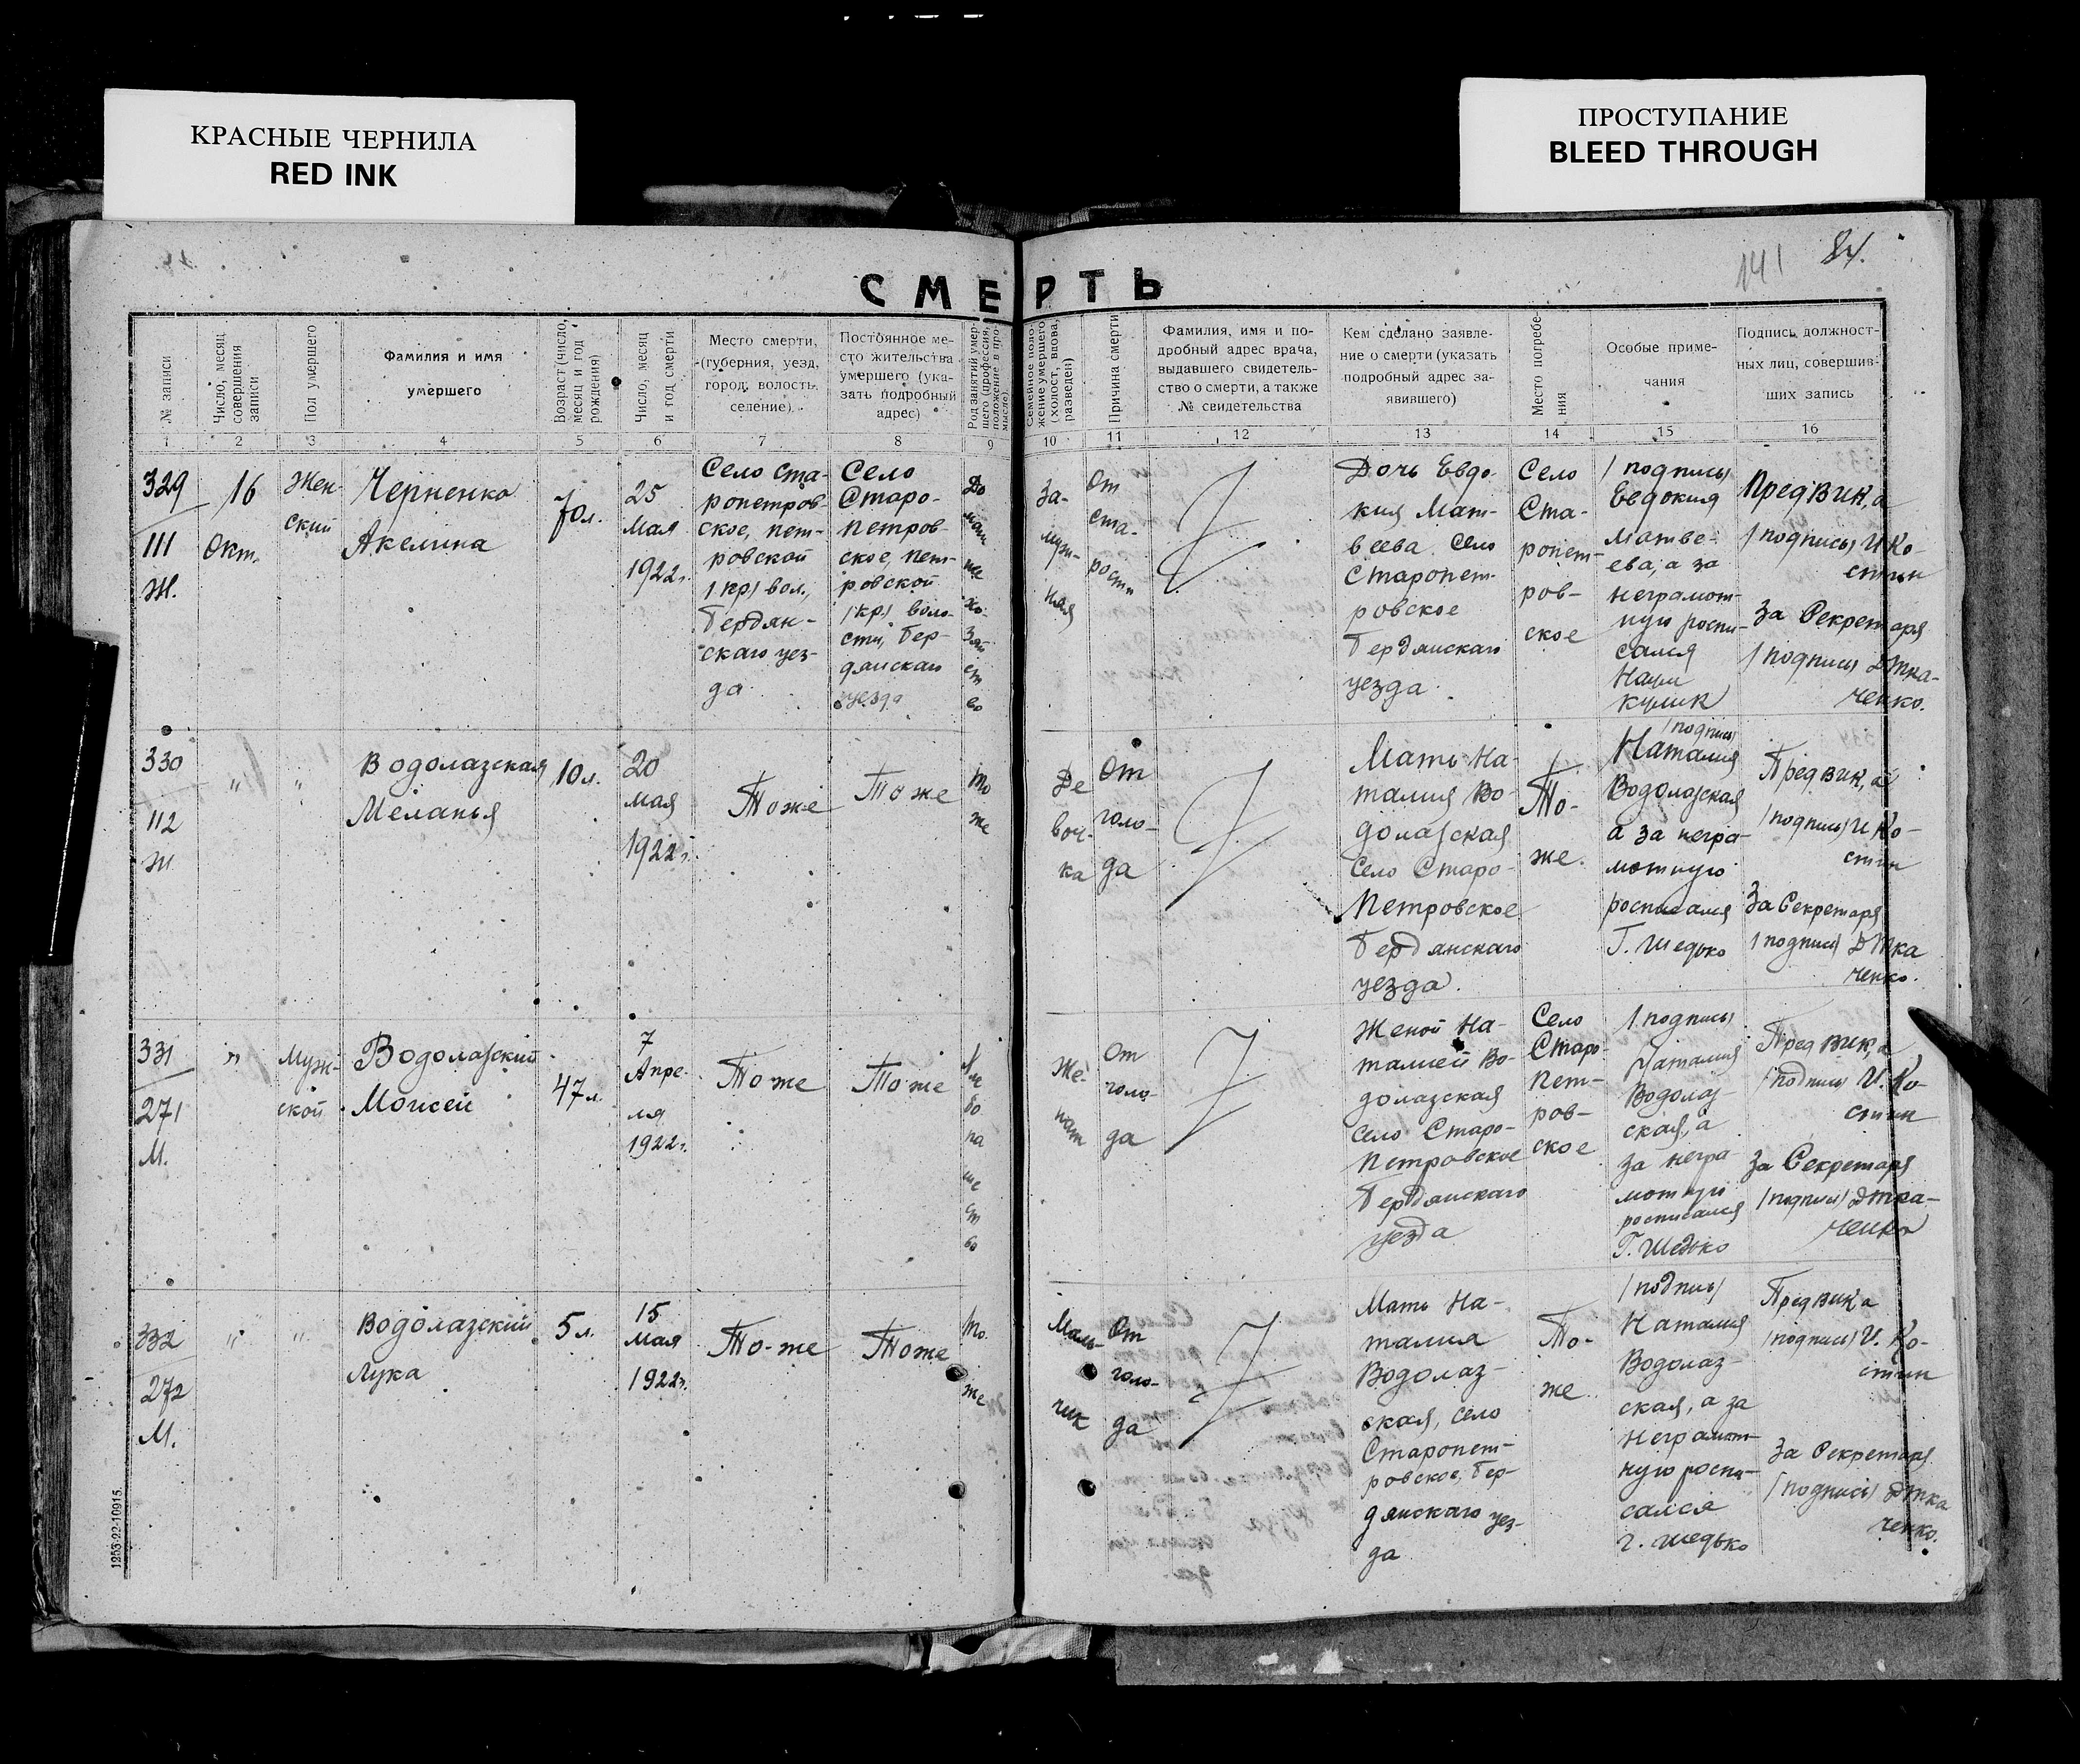 КРАСНЫЕ ЧЕРНИЛА
RED INK
ПРОСТУПАНИЕ
BLEED THROUGH
141 84.
СМЕРТЬ
№ записи
Число, месяц
совершения
записи
Пол умершего
Фамилия и имя
умершего
Возраст (число,
месяц и год
рождения)
Число, месяц
и год смерти
Место смерти,
(губерния, уезд,
город, волость,
селение).
Постоянное ме-
сто жительства
умершего (ука-
зать подробный
адрес)
Род занятий умер-
шего (профессия,
положение в про-
мысле).
Семейное поло-
жение умершего
(холост, вдова,
разведен)
Причина смерти
Фамилия, имя и по-
дробный адрес врача,
выдавшего свидетель-
ство о смерти, а также
№ свидетельства
Кем сделано заявле-
ние о смерти (указать
подробный адрес за-
явившего)
Место погребе-
ния
Особые приме-
чания
Подпись должност-
ных лиц, совершив-
ших запись
1 2 3 4 5 6 7 8 9 10 11 12 13 14 15 16
329
111
Ж.
16
Окт.
Жен-
ский
Черненко
Акелина
70 л.
25
мая
1922 г.
Село Ста-
ропетров-
ское, Пет-
ровской
/кр/ вол.,
Бердян-
скаго уез-
да
Село
Старо-
Петров-
ское, Пет-
ровской
/кр/ воло-
сти, Бер-
дянскаго
уезда
До
маш
нее
хо-
зяй
ст
во
За-
муж-
няя
От
ста-
рости
Дочь Евдо-
кия Мат-
веева село
Старопет-
ровское
Бердянскаго
уезда.
Село
Ста-
ропет-
ров-
ское
/подпись/
Евдокия
Матве-
ева, а за
неграмот-
ную роспи-
сался
Наум
Кулик
ПредВИК,а
/подпись/ И Ко-
стин
За Секретаря
/подпись/ Д Тка-
ченко.
330
112
Ж
"
"
Водолазская
Меланья
10 л.
20
мая
1922 г.
То же
То же
то
же
Де
воч-
ка
От
голо-
да
Мать На-
талия Во-
долазская
село Старо-
Петровское
Бердянскаго
уезда.
То-
же.
/подпись/
Наталия
Водолазская
а за негра-
мотную
росписался
Г. Шедько
ПредВИК,а
/подпись/ И Ко-
стин
За Секретаря
/подпись/ Д Тка
ченко.
331
271
М.
"
Муж-
ской
Водолазский
Моисей
47 л.
7
Апре-
ля
1922 г.
То же
То же
Хле
бо
па
ше
ст
во
Же-
нат
От
голо-
да
Женой На-
талией Во-
долазская
село Старо-
Петровское
Бердянскаго
уезда
Село
Старо-
Пет-
ров-
ское
/подпись/
Наталия
Водолаз-
ская, а
за негра-
мотную
росписался
Г. Шедько
ПредВИК,а
/подпись/ И. Ко-
стин
За Секретаря
/подпись/ Д Тка-
ченко
332
272
М.
"
"
Водолазский
Лука
5 л.
15
мая
1922 г.
То-же
То же
то.
же
Маль-
чик
От
голо-
да
Мать На-
талия
Водолаз-
ская, село
Старопет-
ровское, Бер-
дянскаго уез-
да
То-
же
/подпись/
Наталия
Водолаз-
ская, а за
неграмот-
ную роспи-
сался
Г. Шедько
ПредВИКа
/подпись/ И. Ко-
стин
За Секретаря
/подпись/ Д Тка
ченко.
1253-22-10915.